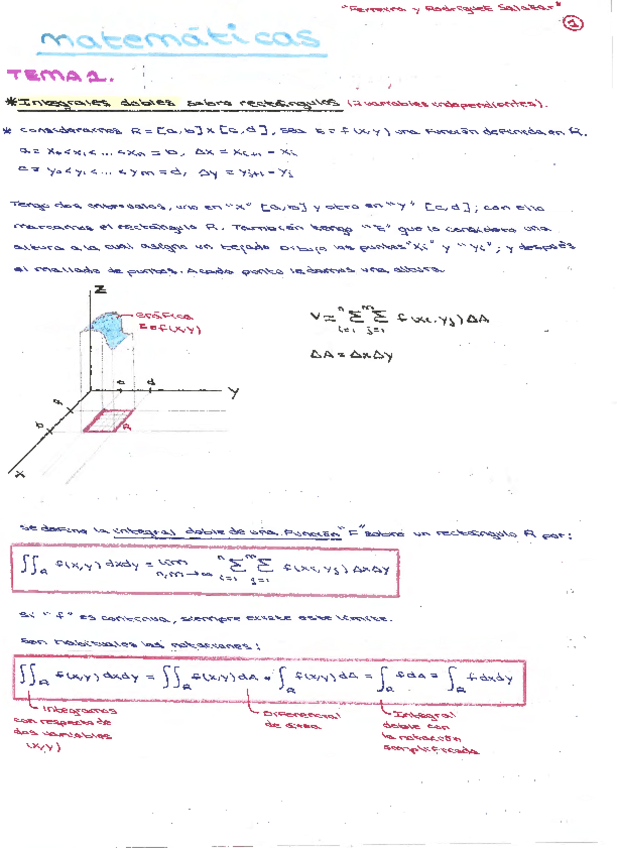 "Ferreira y Rodríguez Salazar"
1
matemáticas
TEMA 1.
* Integrales dobles sobre rectángulos (2 variables independientes).
* Consideramos R = [a,b] x [c,d], sea z = f(x,y) una función definida en R.
a = x₀ < x₁ < ... < xₙ = b, Δx = xᵢ₊₁ - xᵢ
c = y₀ < y₁ < ... < yₘ = d, Δy = yⱼ₊₁ - yⱼ
Tengo dos intervalos, uno en "x" [a,b] y otro en "y" [c,d]; con ello
marcamos el rectángulo R. También tengo "z" que lo considero una
altura a la cual asigno un tejado. Dibujo los puntos "xᵢ" y "yⱼ"; y después
el mallado de puntos. A cada punto le damos una altura.
z
gráfica
z = f(x,y)
V ≈ ⁿΣᵢ₌₁ ᵐΣⱼ₌₁ f(xᵢ, yⱼ) ΔA
ΔA = ΔxΔy
c d
y
a
b
R
x
Se define la integral doble de una función "f" sobre un rectángulo R por:
∬_R f(x,y) dxdy = lim n,m→∞ ⁿΣᵢ₌₁ ᵐΣⱼ₌₁ f(xᵢ, yⱼ) ΔxΔy
Si "f" es continua, siempre existe este límite.
Son habituales las notaciones:
∬_R f(x,y) dxdy = ∬_R f(x,y) dA = ∫_R f(x,y) dA = ∫_R f dA = ∫_R f dxdy
Integramos
con respecto de
dos variables
(x,y)
Diferencial
de área
Integral
doble con
la notación
simplificada